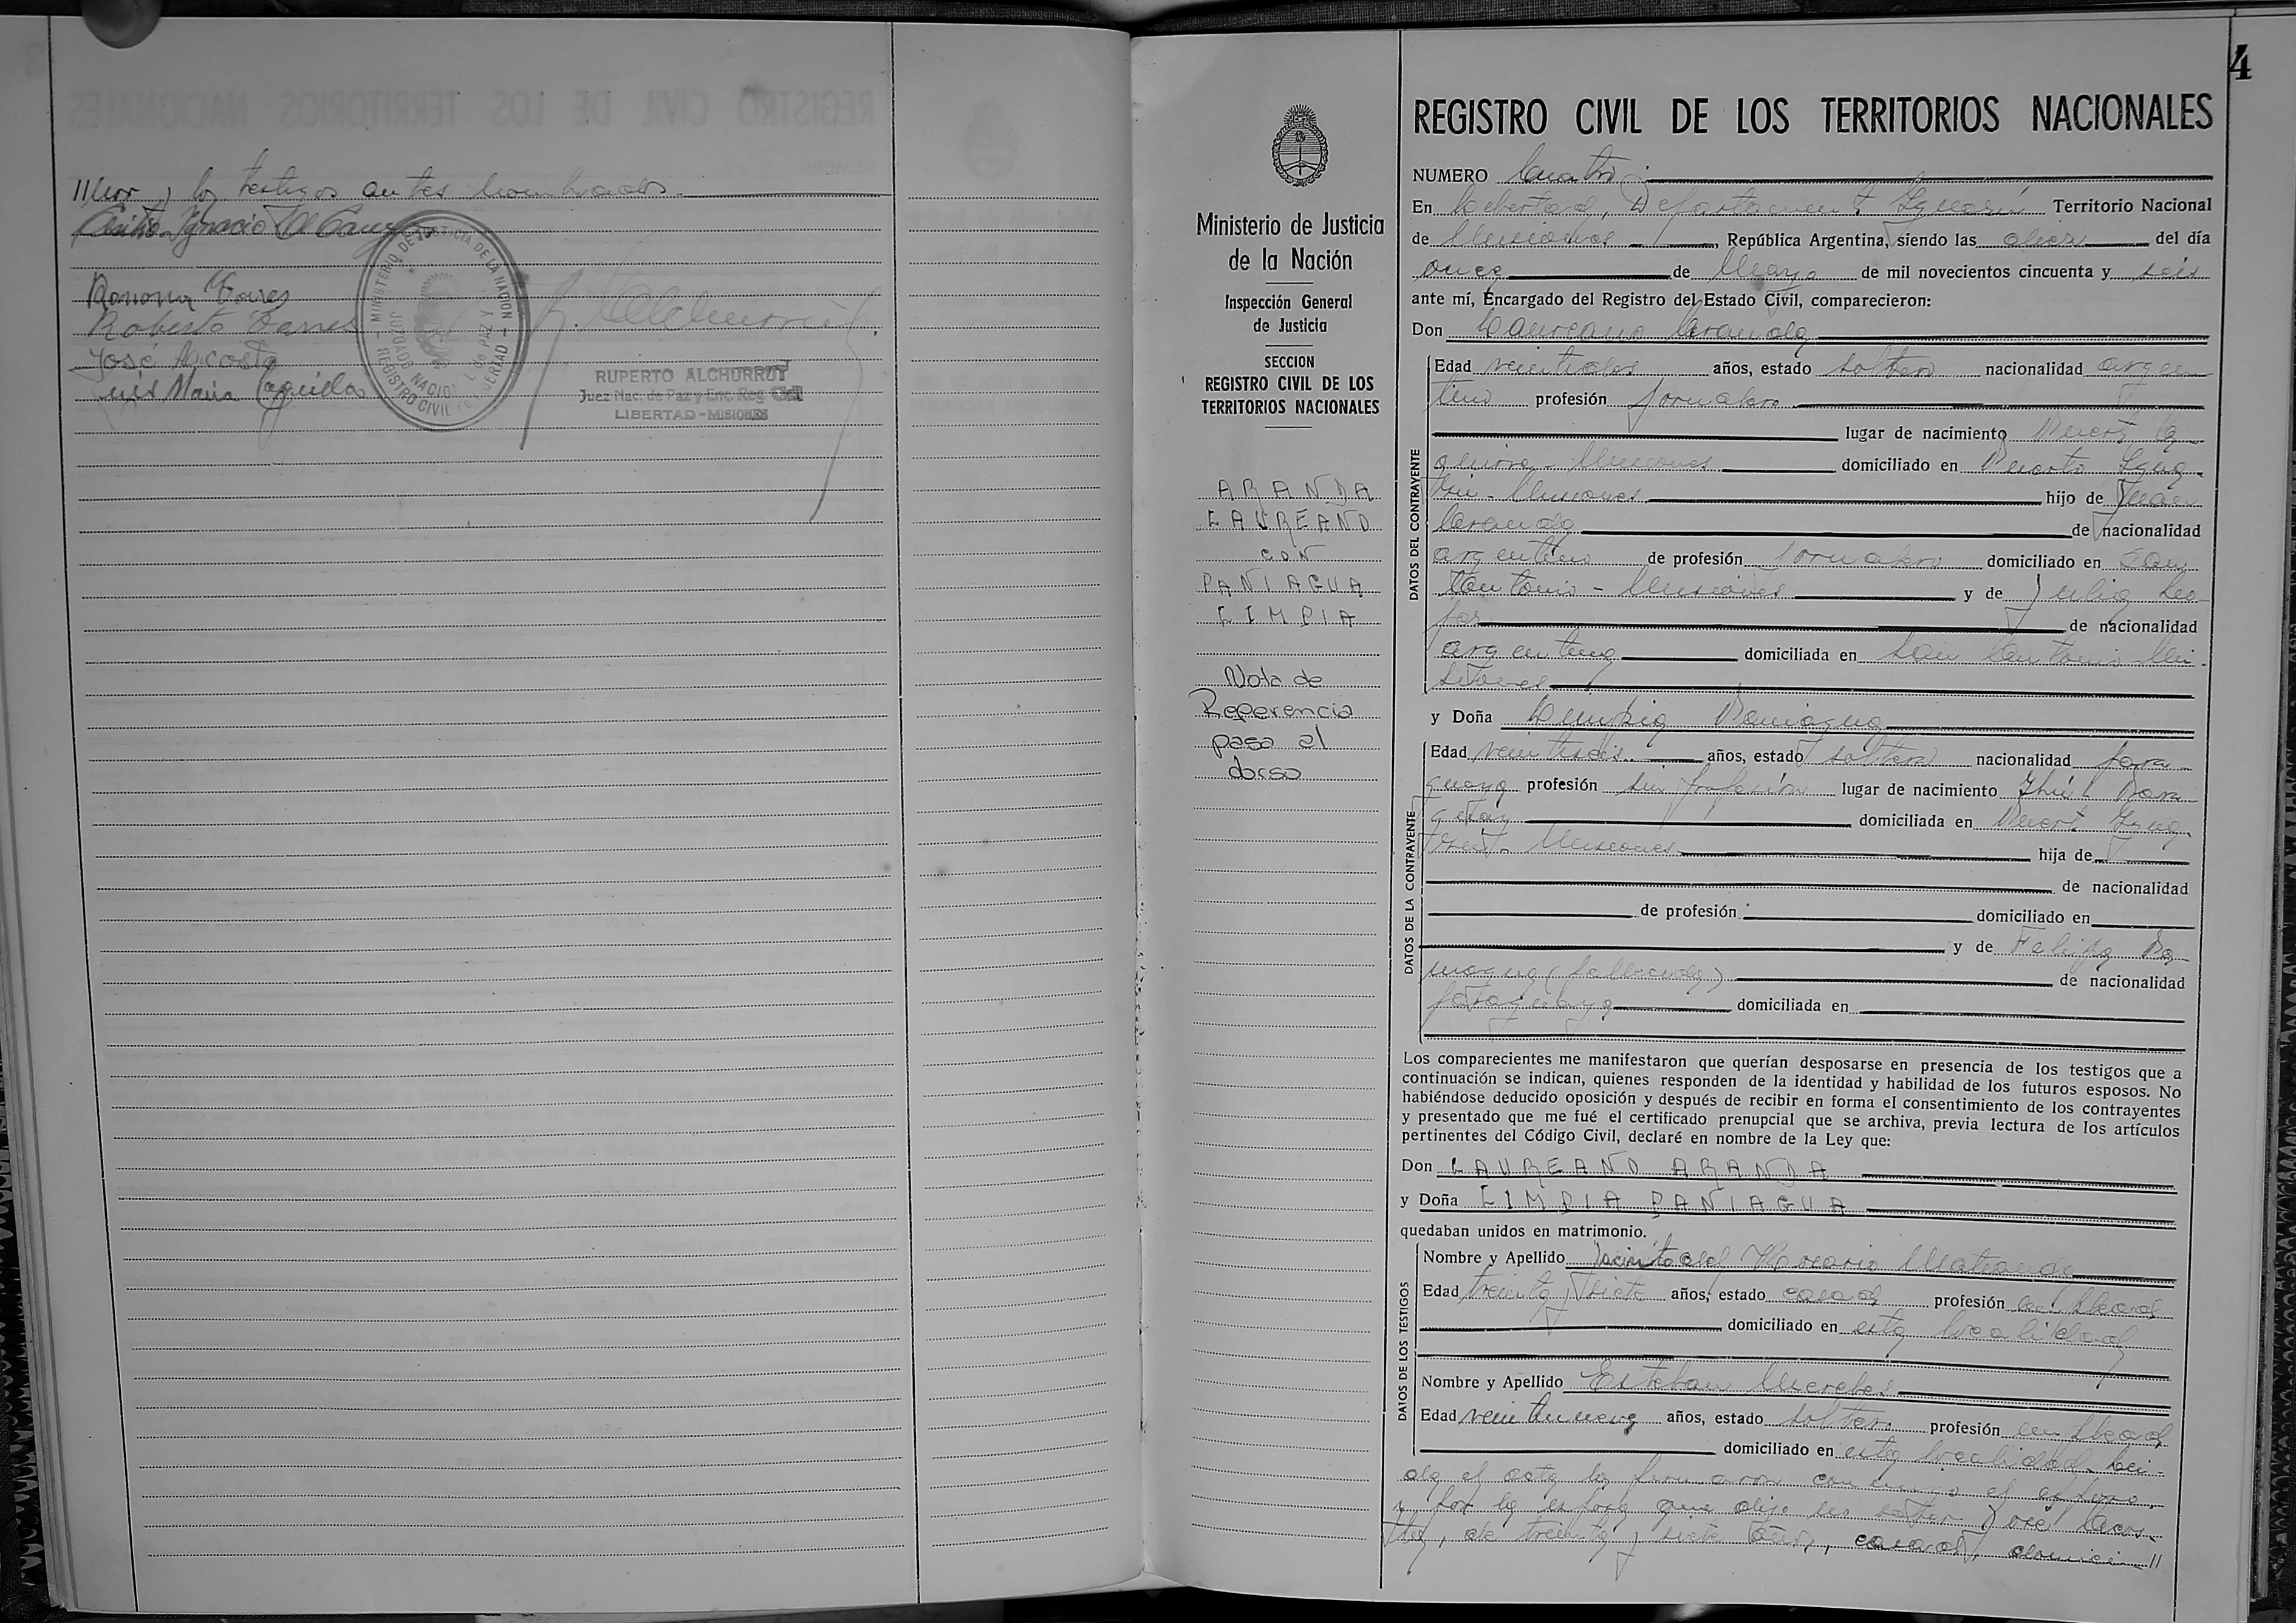 //nor, y los testigos antes nombrados.
Ramona Torres
Roberto Torres
José Acosta
Luis Maria
MINISTERIO DE JUSTICIA DE LA NACION
JUZGADO NACIONAL DE PAZ Y
REGISTRO CIVIL LIBERTAD
RUPERTO ALCHURRUT
Juez Nac. de Paz y Enc. Reg. Civil
LIBERTAD - MISIONES
4
Ministerio de Justicia
de la Nación
Inspección General
de Justicia
SECCION
REGISTRO CIVIL DE LOS
TERRITORIOS NACIONALES
ARANDA
LAUREANO
CON
PANIAGUA
LIMPIA
Nota de
Referencia
pasa al
dorso
REGISTRO CIVIL DE LOS TERRITORIOS NACIONALES
NUMERO Cuatro
En Libertad, Departamento Iguazú Territorio Nacional
de Misiones, República Argentina, siendo las diez del día
once de Mayo de mil novecientos cincuenta y seis
ante mí, Encargado del Registro del Estado Civil, comparecieron:
Don Laureano Aranda
DATOS DEL CONTRAYENTE
Edad veintidos años, estado soltero nacionalidad argen-
tino profesión jornalero
lugar de nacimiento Puerto
Misiones domiciliado en Puerto Igua-
zú - Misiones hijo de Juan
Aranda de nacionalidad
argentino de profesión jornalero domiciliado en San
Antonio - Misiones y de Julia
de nacionalidad
argentina domiciliada en San Antonio Mi-
siones
y Doña Limpia Paniagua
DATOS DE LA CONTRAYENTE
Edad veintiseis años, estado soltera nacionalidad para-
guaya profesión sin profesión lugar de nacimiento Para-
guay domiciliada en Puerto Igua-
zú - Misiones hija de
de nacionalidad
de profesión domiciliado en
y de Felipa Pa-
niagua (fallecida) de nacionalidad
paraguaya domiciliada en
Los comparecientes me manifestaron que querían desposarse en presencia de los testigos que a
continuación se indican, quienes responden de la identidad y habilidad de los futuros esposos. No
habiéndose deducido oposición y después de recibir en forma el consentimiento de los contrayentes
y presentado que me fué el certificado prenupcial que se archiva, previa lectura de los artículos
pertinentes del Código Civil, declaré en nombre de la Ley que:
Don LAUREANO ARANDA
y Doña LIMPIA PANIAGUA
quedaban unidos en matrimonio.
DATOS DE LOS TESTIGOS
Nombre y Apellido del Rosario
Edad treinta y siete años, estado casado profesión empleado
domiciliado en esta localidad
Nombre y Apellido Esteban Mereles
Edad veintinueve años, estado soltero profesión empleado
domiciliado en esta localidad. Lei-
da el acta la firmaron conmigo el esposo,
y por la esposa que dijo no José Acos-
ta, de treinta y siete años, casado, domici-//